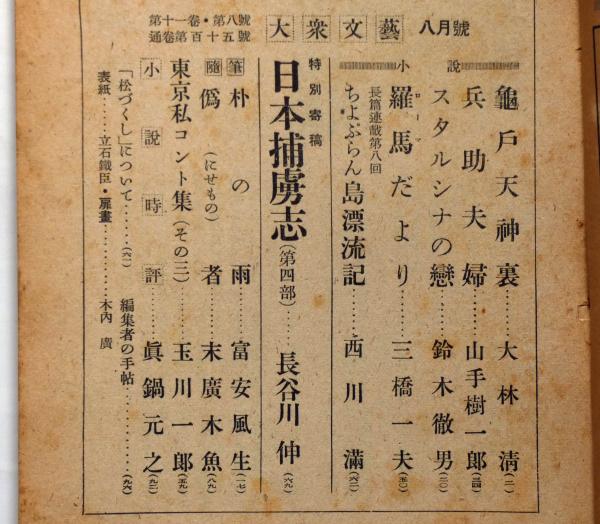 大衆文藝 八月號
第十一卷・第八號
通卷第百十五號
小說
龜戶天神裏……大林清(二)
兵助夫婦……山手樹一郎(二四)
スタルシナの戀……鈴木徹男(三〇)
羅馬だより……三橋一夫(五〇)
ローマ
長篇連載第八回
ちよぷらん島漂流記……西川滿(六二)
特別寄稿
日本捕虜志(第四部)……長谷川伸(六九)
隨筆
朴の雨……富安風生(一七)
僞者(にせもの)……末廣木魚(八九)
東京私コント集(その三)……玉川一郎(五九)
小說時評……眞鍋元之(九二)
「松づくし」について……(六一)
編集者の手帖……(九六)
表紙……立石鐵臣・扉畫……木內廣